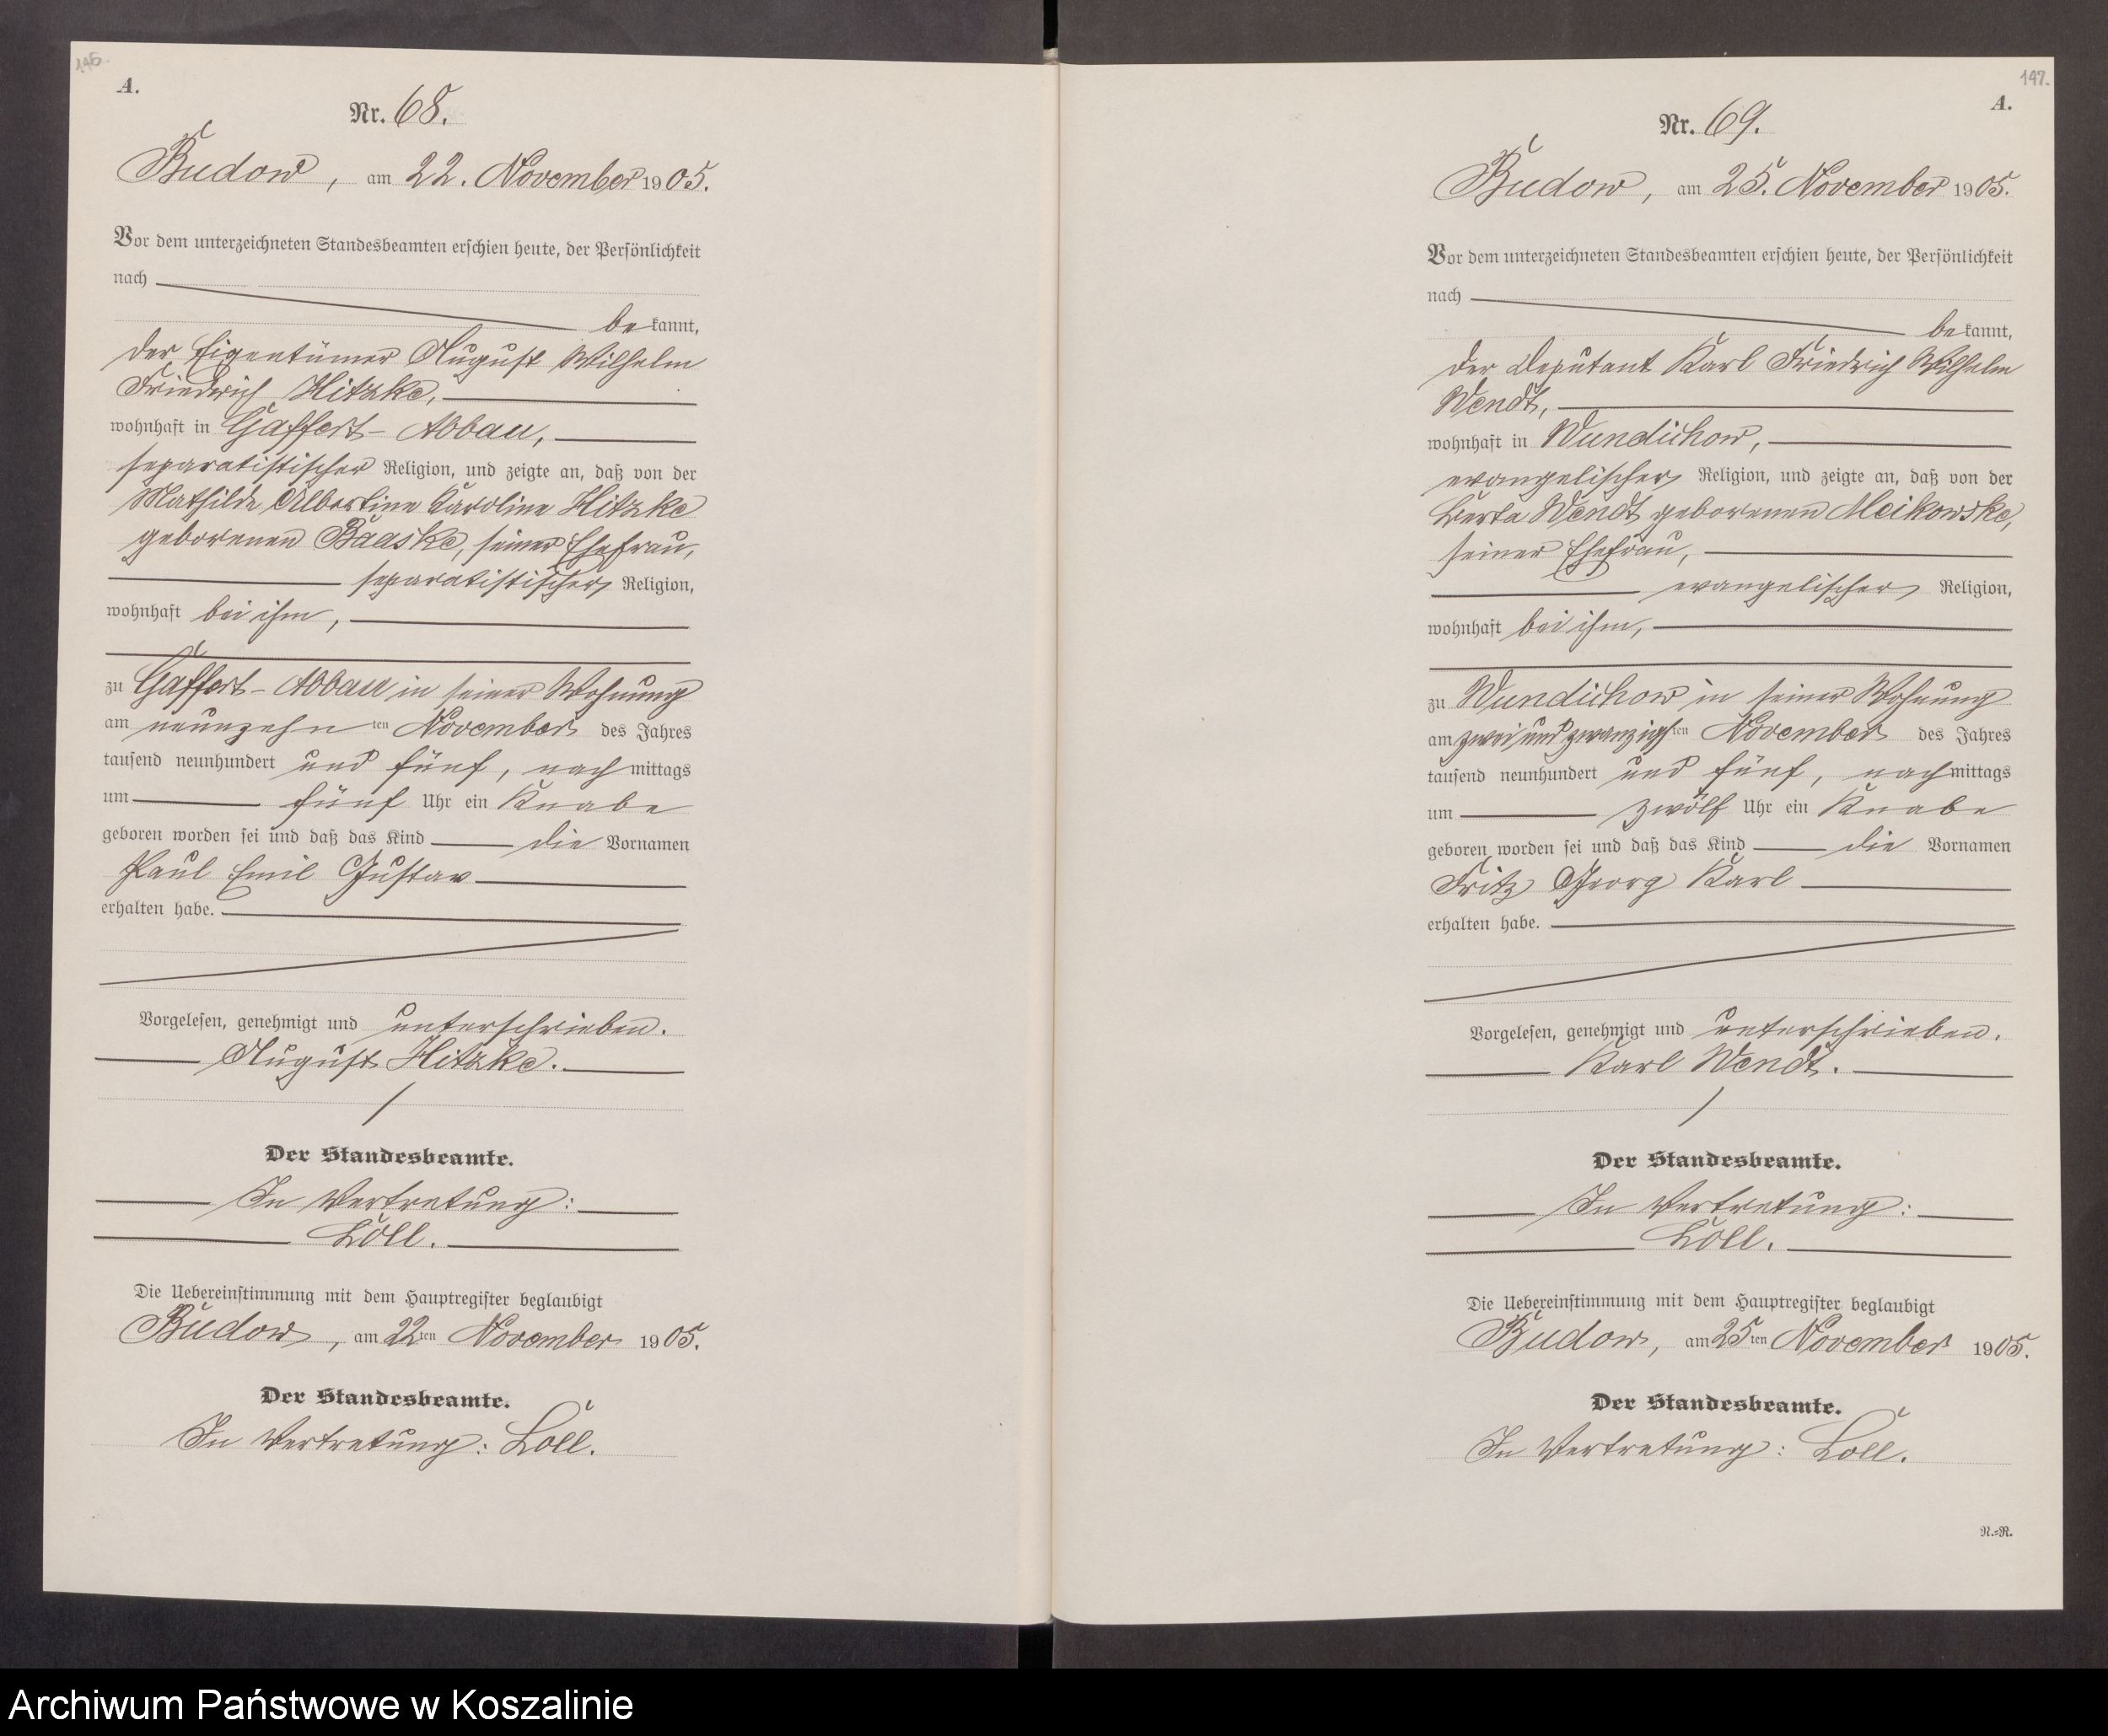 146.
A.
Nr. 68.
Budow, am 22. November 1905.
Vor dem unterzeichneten Standesbeamten erschien heute, der Persönlichkeit
nach
bekannt,
der Eigentümer August Wilhelm
Friedrich Hitzke,
wohnhaft in Gaffert-Abbau,
separatistischer Religion, und zeigte an, daß von der
Mathilde Albertine Karoline Hitzke
geborenen Baaske, seiner Ehefrau,
separatistischer Religion,
wohnhaft bei ihm,
zu Gaffert-Abbau in seiner Wohnung
am neunzehnten November des Jahres
tausend neunhundert und fünf, nachmittags
um fünf Uhr ein Knabe
geboren worden sei und daß das Kind die Vornamen
Paul Emil Gustav
erhalten habe.
Vorgelesen, genehmigt und unterschrieben.
August Hitzke.
Der Standesbeamte.
In Vertretung:
Löll.
Die Uebereinstimmung mit dem Hauptregister beglaubigt
Budow, am 22ten November 1905.
Der Standesbeamte.
In Vertretung: Löll.
147.
A.
Nr. 69.
Budow, am 25. November 1905.
Vor dem unterzeichneten Standesbeamten erschien heute, der Persönlichkeit
nach
bekannt,
der Deputant Karl Friedrich Wilhelm
Wendt,
wohnhaft in Wundichow,
evangelischer Religion, und zeigte an, daß von der
Berta Wendt geborenen Meikowske,
seiner Ehefrau,
evangelischer Religion,
wohnhaft bei ihm,
zu Wundichow in seiner Wohnung
am zwei und zwanzigsten November des Jahres
tausend neunhundert und fünf, nachmittags
um zwölf Uhr ein Knabe
geboren worden sei und daß das Kind die Vornamen
Fritz Georg Karl
erhalten habe.
Vorgelesen, genehmigt und unterschrieben.
Karl Wendt.
Der Standesbeamte.
In Vertretung:
Löll.
Die Uebereinstimmung mit dem Hauptregister beglaubigt
Budow, am 25ten November 1905.
Der Standesbeamte.
In Vertretung: Löll.
N.=R.
Archiwum Państwowe w Koszalinie